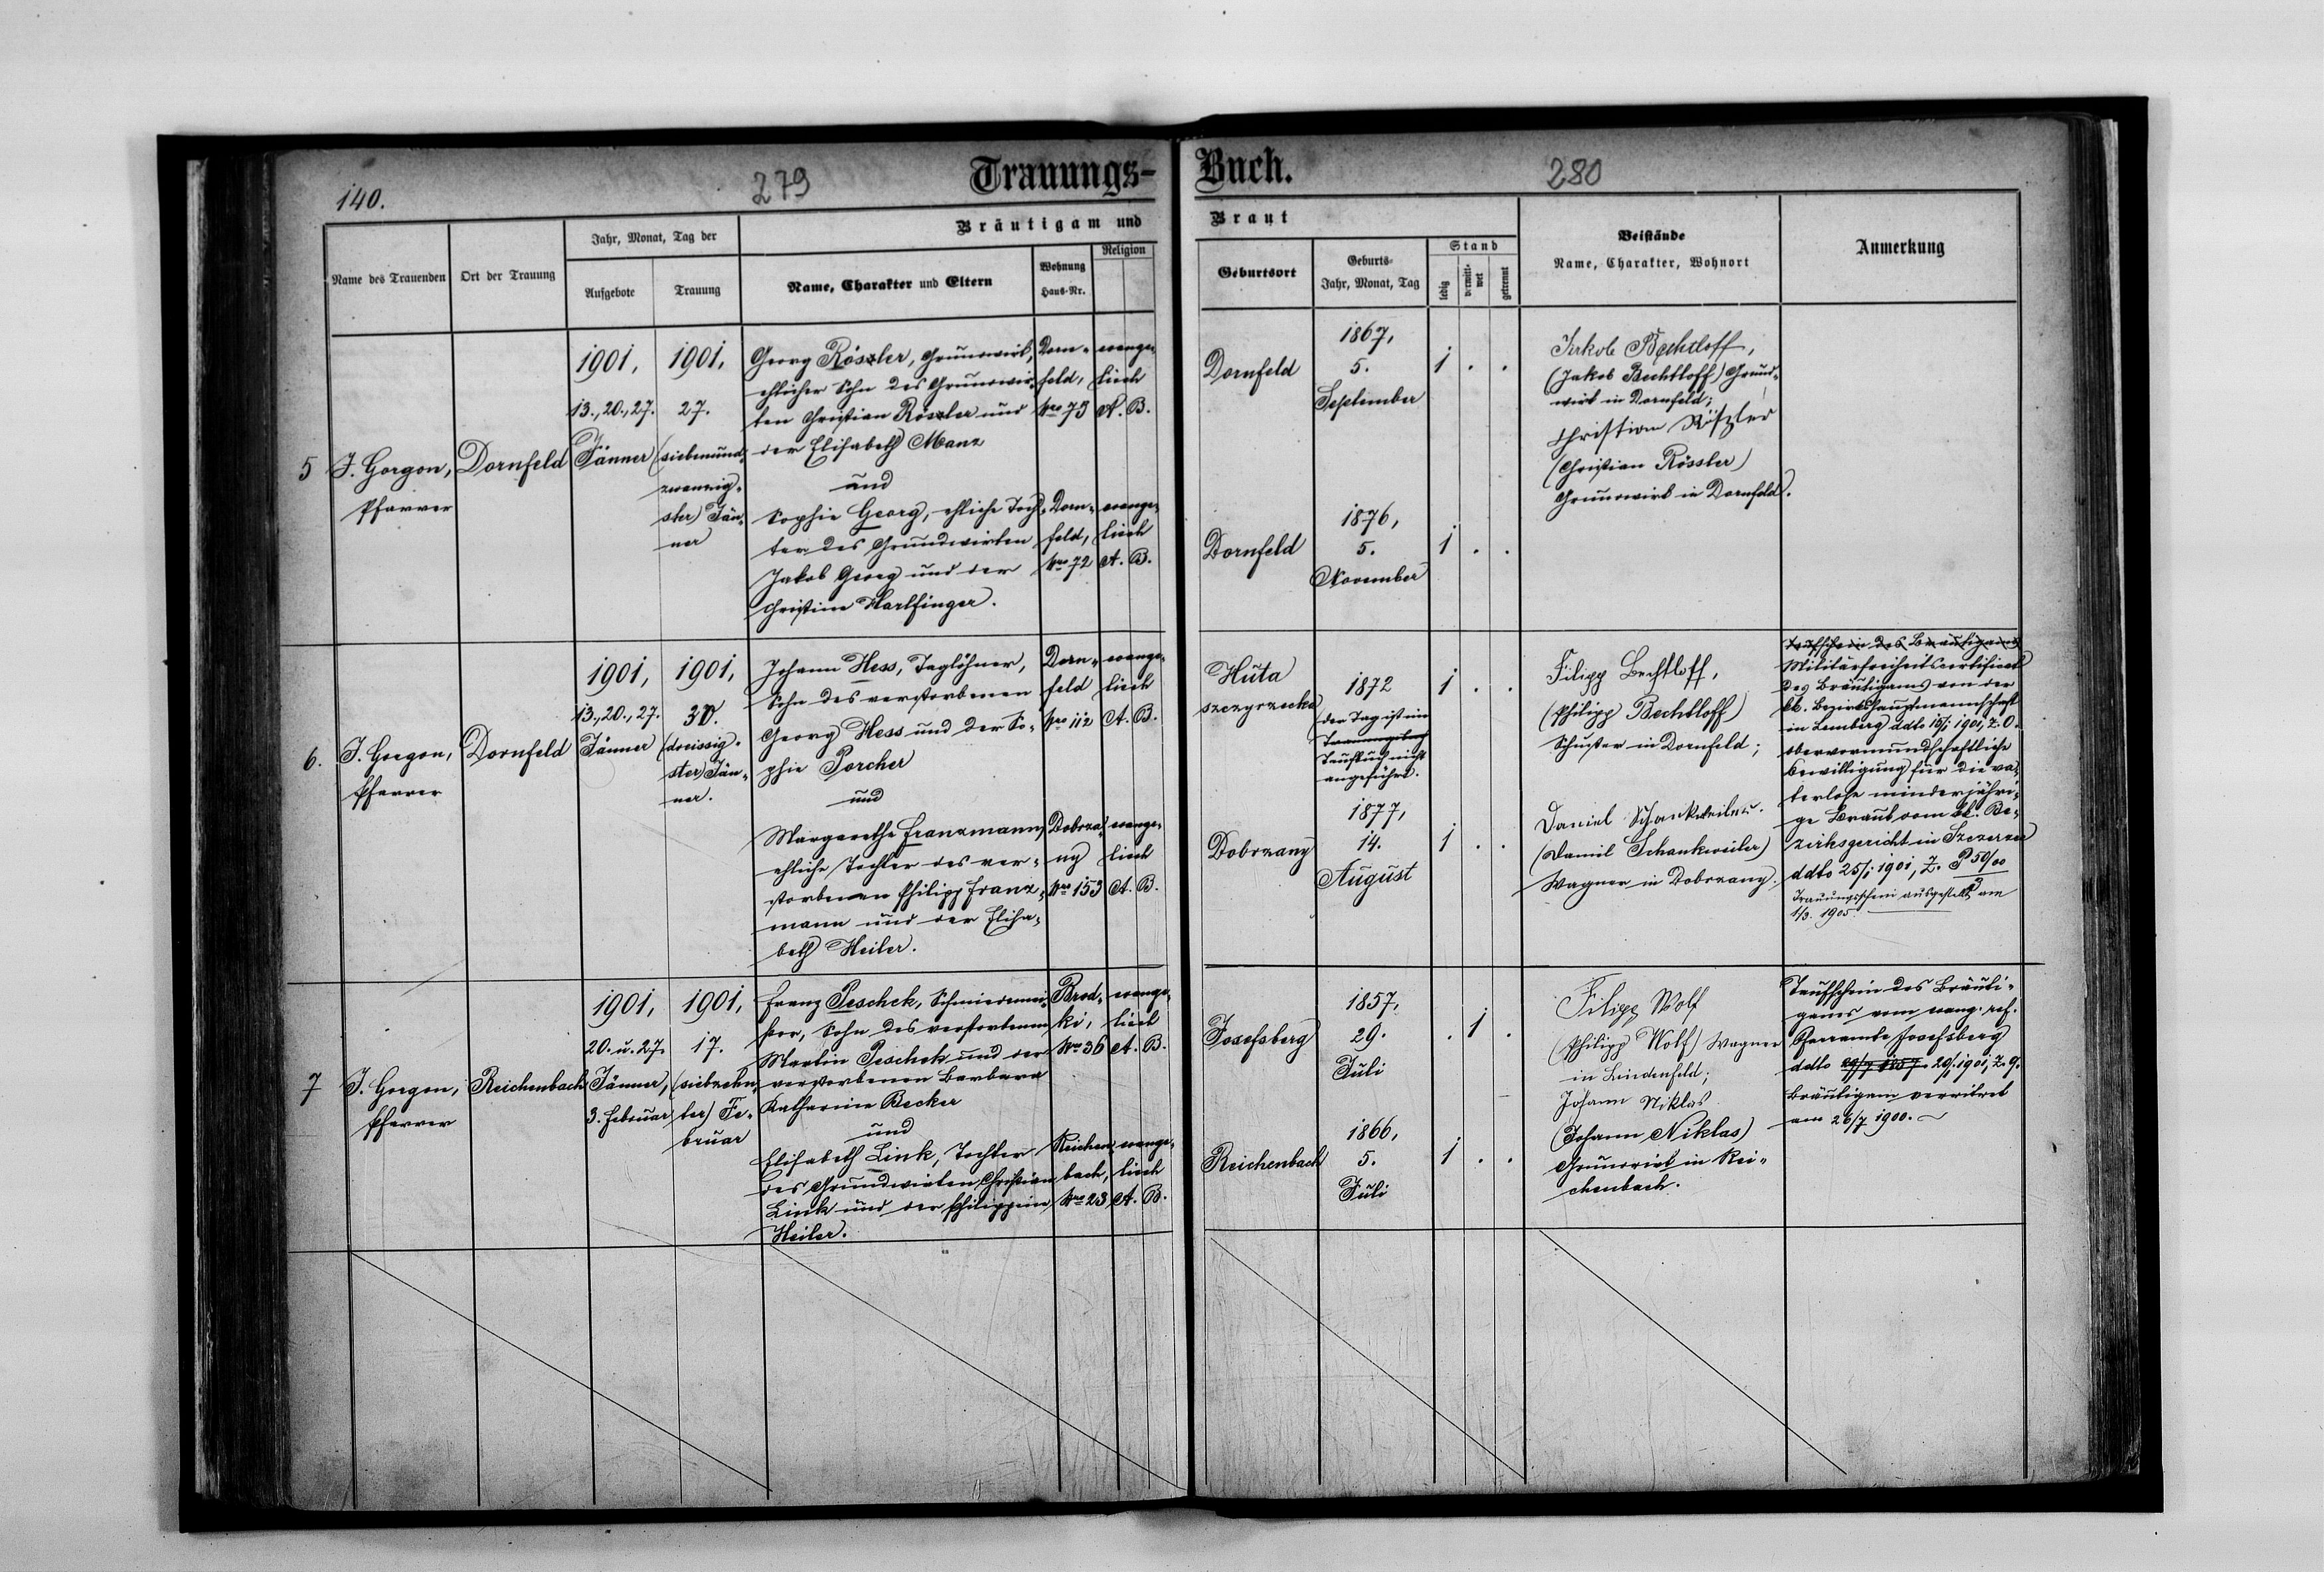 140.
279
Trauungs-
Buch.
280
Name des Trauenden
Ort der Trauung
Jahr, Monat, Tag der
Aufgebote
Trauung
Bräutigam und
Name, Charakter und Eltern
Wohnung
Haus-Nr.
Religion
Braut
Geburtsort
Geburts-
Jahr, Monat, Tag
Stand
ledig
verwitt-
wet
getrennt
Beistände
Name, Charakter, Wohnort
Anmerkung
5
J. Gorgon,
Pfarrer
Dornfeld
1901,
13., 20., 27.
Jänner
1901,
27.
(siebenund-
zwanzig-
ster) Jän-
ner
Georg Röszler, Grundwirt,
ehlicher Sohn des Grundwir-
ten Christian Röszler und
der Elisabeth Manz
und
Sophie Georg, ehliche Toch-
ter des Grundwirten
Jakob Georg und der
Christine Harlfinger.
Dorn-
feld,
Nro 75
Dorn-
feld,
Nro 72
evange-
lisch
A. B.
evange-
lisch
A. B.
Dornfeld
1867,
5.
September
1 . .
Dornfeld
1876,
5.
November
1 . .
Jakob Bechtloff,
(Jakob Bechtloff) Grund-
wirt in Dornfeld;
Christian Rößler
(Christian Rössler)
Grundwirt in Dornfeld.
6.
J. Gorgon,
Pfarrer
Dornfeld
1901,
13., 20., 27.
Jänner
1901,
30.
(dreissig-
ster) Jän-
ner.
Johann Hess, Taglöhner,
Sohn des verstorbenen
Georg Hess und der So-
phie Porcher
und
Margarethe Franzmann,
ehliche Tochter des ver-
storbenen Philipp Franz-
mann und der Elisa-
beth Heiler.
Dorn-
feld
Nro 112
Dobrza-
ny
Nro 153
evange-
lisch
A. B.
evange-
lisch
A. B.
Huta
szczyrzecka
1872
der Tag ist im
Trauungsbuch
Taufbuch nicht
angeführt.
1 . .
Dobrzany
1877,
14.
August
1 . .
Filipp Bechtloff,
(Philipp Bechtloff)
Schuster in Dornfeld;
Daniel Schankweiler.
(Daniel Schankweiler)
Wagner in Dobrzany.
Taufschein des Bräutigams
Militärfreiheitscertificat
des Bräutigams von der
kk. Bezirkshauptmannschaft
in Lemberg ddto 15/1 1901, Z. 0.
obervormundschaftliche
Bewilligung für die va-
terlose minderjähri-
ge Braut vom kk. Be-
zirksgericht in Szczerzec
ddto 25/1 1901, Z. P 50/00
Trauungsschein ausgestellt am
1/3. 1905.
7
J. Gorgon,
Pfarrer
Reichenbach
1901,
20. u. 27.
Jänner,
3. Februar
1901,
17.
(siebzehn-
ter) Fe-
bruar
Franz Peschek, Schmiedemei-
ster, Sohn des verstorbenen
Martin Peschek und der
verstorbenen Barbara
Katharine Becker
und
Elisabeth Link, Tochter
des Grundwirten Christian
Link und der Philippine
Heiler.
Brod-
ki,
Nro 36
Reichen-
bach,
Nro 23
evange-
lisch
A. B.
evange-
lisch
A. B.
Josefsberg
1857,
29.
Juli
. 1 .
Reichenbach
1866,
5.
Juli
1 . .
Filipp Wolf
(Philipp Wolf) Wagner
in Lindenfeld;
Johann Niklas
(Johann Niklas)
Grundwirt in Rei-
chenbach.
Taufschein des Bräuti-
gams vom evang. ref.
Pfarramte Josefsberg
ddto 29/7 1857 20/1 1901, Z. 9.
Bräutigam verwitwet
am 26/7 1900.